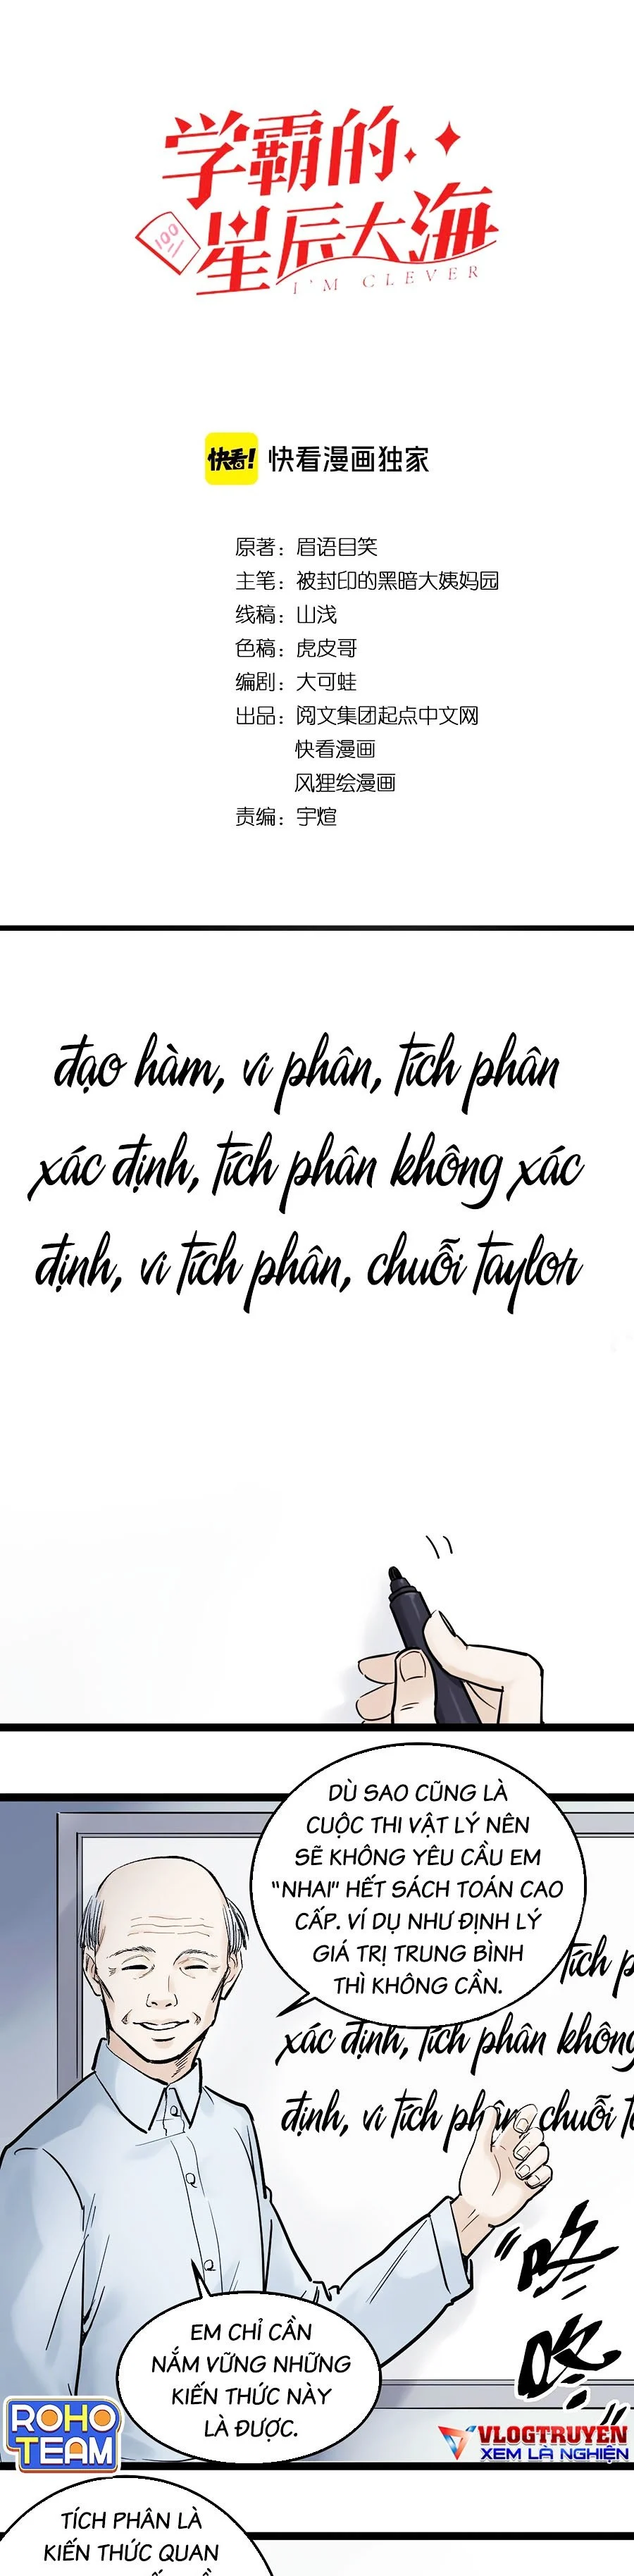 学霸的
100
星辰大海
I'M CLEVER
快看! 快看漫画独家
原著：眉语目笑
主笔：被封印的黑暗大姨妈园
线稿：山浅
色稿：虎皮哥
编剧：大可蛙
出品：阅文集团起点中文网
快看漫画
风狸绘漫画
责编：宇煊
đạo hàm, vi phân, tích phân
xác định, tích phân không xác
định, vi tích phân, chuỗi taylor
DÙ SAO CŨNG LÀ
CUỘC THI VẬT LÝ NÊN
SẼ KHÔNG YÊU CẦU EM
“NHAI” HẾT SÁCH TOÁN CAO
CẤP. VÍ DỤ NHƯ ĐỊNH LÝ
GIÁ TRỊ TRUNG BÌNH
THÌ KHÔNG CẦN.
tích p
xác định, tích phân không
định, vi tích phân, chuỗi t
咚
咚
EM CHỈ CẦN
NẮM VỮNG NHỮNG
KIẾN THỨC NÀY
LÀ ĐƯỢC.
ROHO
TEAM
VLOGTRUYEN
XEM LÀ NGHIỆN
TÍCH PHÂN LÀ
KIẾN THỨC QUAN